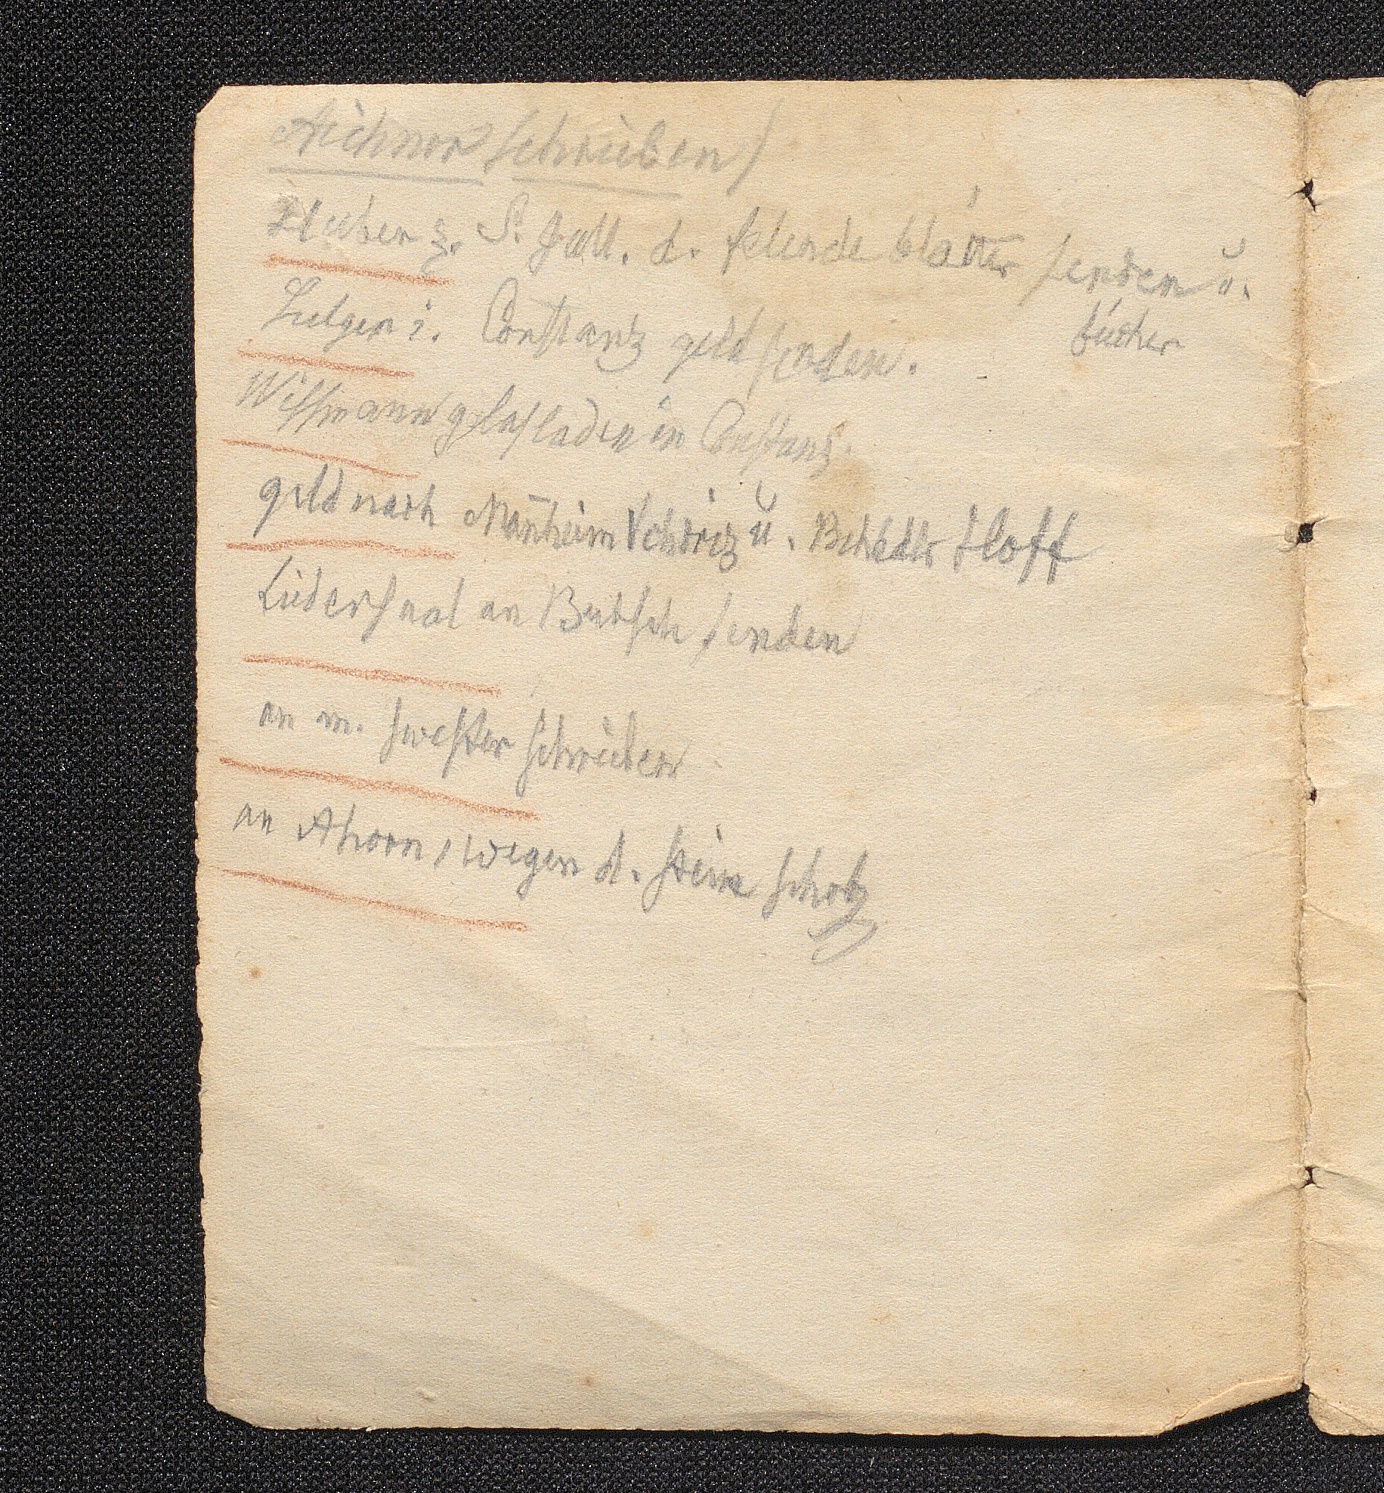 Aichner schreiben
Hueber z. S. Gall. d. felende blätter senden ŭ.
bücher
Lutgen i. Constanz geld senden.
Wissmann glasladen in Constanz.
geld nach Man̄heim Schöriz ŭ. hoff
Liedersaal an Butsch senden
an m. swester schreiben
an Ahorn, wegen d. steine scholz